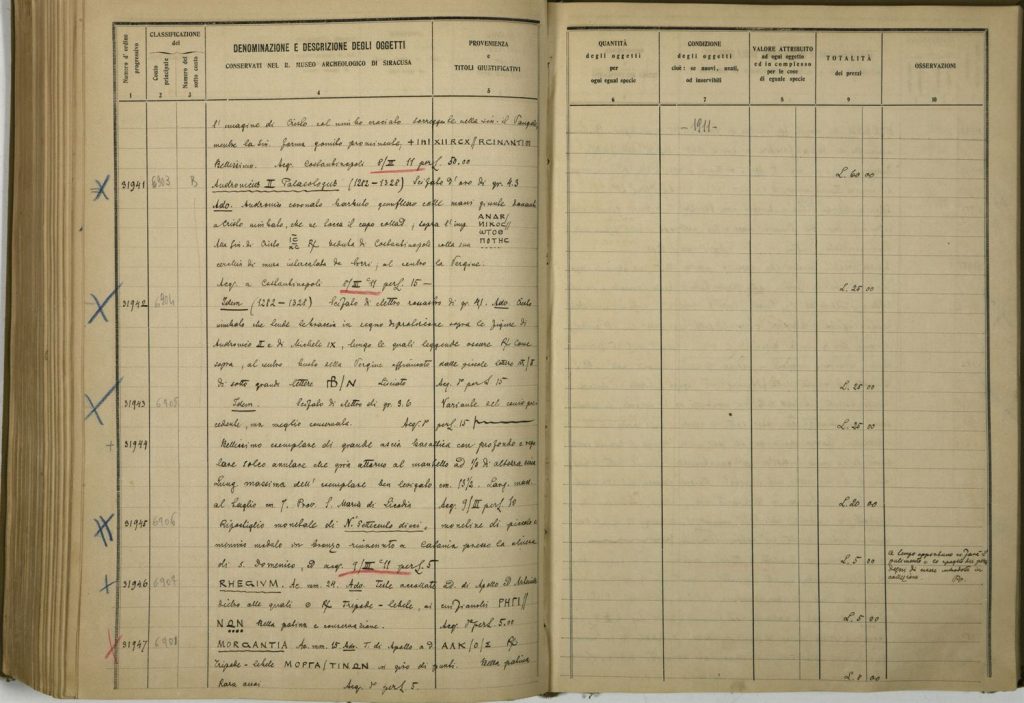 Numero d'ordine progressivo
CLASSIFICAZIONE
del
Conto principale
Numero del sotto conto
DENOMINAZIONE E DESCRIZIONE DEGLI OGGETTI
CONSERVATI NEL R. MUSEO ARCHEOLOGICO DI SIRACUSA
PROVENIENZA
e
TITOLI GIUSTIFICATIVI
1 2 3 4 5
l'imagine di Cristo col nimbo crociato sorregente nella sin. il Vangelo,
mentre la sin. forma gomito prominente,
Bellissimo. Acq. Costantinopoli 8/III 11 per £ 50.00
31941 6903 B Andronicus II Palaeologus (1282-1328) Scifato d'oro di gr. 4.3
Ado. Andronico coronato barbuto genuflesso colle mani giunte davanti
a Cristo nimbato, che ne tocca il capo colla d; sopra l'imp. ΑΝΔΡ/
ΝΙΚΟC//
ΩΤΟΘ
ΠΟΤΗC
alla sin. di Cristo IC XC R/ Veduta di Costantinopoli colla sua
cerchia di mura intercalata da torri; al centro la Vergine.
Acq. a Costantinopoli 8/III 11 per £ 15 —
31942 6904 Idem (1282-1328) Scifato di elettro di gr. 4. Ado Cristo
nimbato che tende le braccia in segno di protezione sopra le figure di
Andronico II e di Michele IX, lungo le quali leggende oscure R/ Come
sopra, al centro busto della Vergine affiancato dalle piccole lettere
di sotto grandi lettere Β/Ν Acq. per £ 15
31943 6905 Idem. Scifato di elettro di gr. 3.6 Variante del conio pre
cedente, ma meglio conservata. Acq. per £ 15
31944 Bellissimo esemplare di grande ascia basaltica con profondo e rego
lare solco anulare che gira attorno al
Lung. massima dell'esemplare ben levigato cm. 13½. Larg. mass.
al taglio cm 7. Prov. S. Maria di Licodia Acq. 9/III per £ 10
31945 6906 Ripostiglio monetale di N° Settecento dieci, monetine di piccolo e
minimo modulo in bronzo rinvenuto a Catania presso la chiesa
di S. Domenico, ed acq. 9/III 11 per £ 5
31946 6907 RHEGIVM. Ae. mm. 24. Ado. Teste accollate di Apollo ed Artemide
dietro alle quali R/ Tripode-lebete, ai cui fianchi ΡΗΓΙ//
ΝΩΝ Bella patina e conservazione. Acq. per £ 5.00
31947 6908 MORGANTIA Ae. mm. 15 Ado. T. di Apollo a d. ΑΛΚ/Ο/Σ R/
Tripode-lebete ΜΟΡΓΑ/ΤΙΝΩΝ in giro di punti. Bella patina
Rara assai Acq. per £ 5.
QUANTITÀ
degli oggetti
per
ogni egual specie
CONDIZIONE
degli oggetti
cioè: se nuovi, usati,
od inservibili
VALORE ATTRIBUITO
ad ogni oggetto
ed in complesso
per le cose
di eguale specie
TOTALITÀ
dei prezzi
OSSERVAZIONI
6 7 8 9 10
-1911-
£. 60 00
£. 25 00
£. 25 00
£. 25 00
£. 20 00
£. 5 00
£. 5 00
£. 8 00